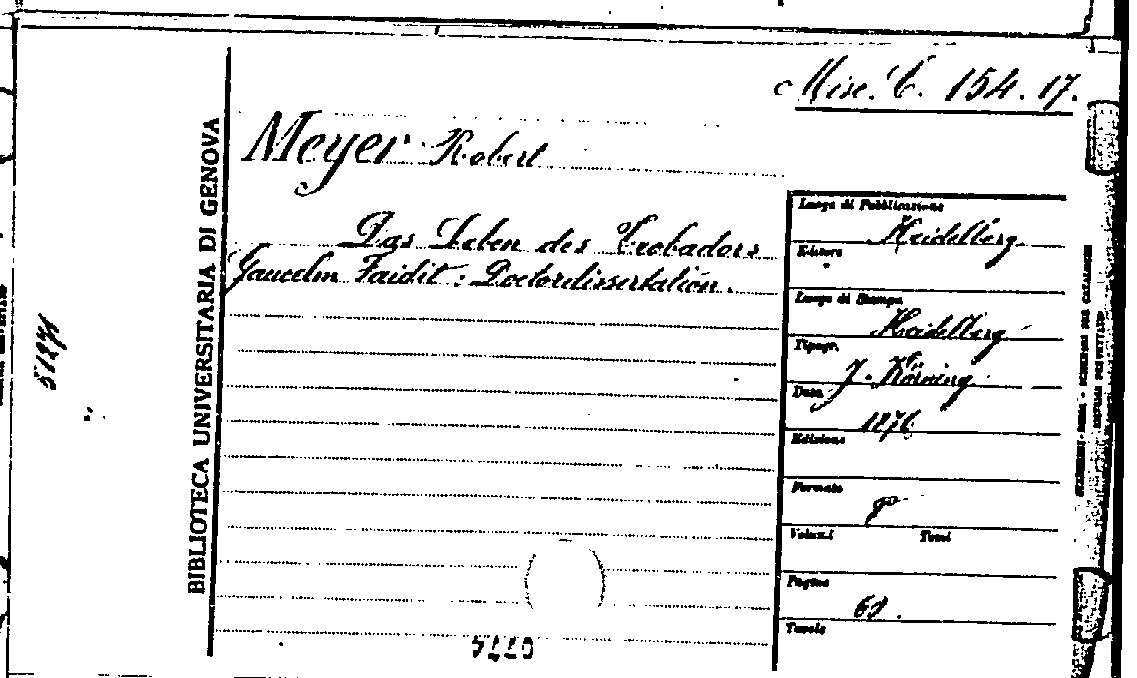 Misc. C. 154. 17.
BIBLIOTECA UNIVERSITARIA DI GENOVA
Meyer Robert
Das Leben des Trobadors
Gaucelm Faidit : Doctordissertation.
Luogo di Pubblicazione
Heidelberg
Editore
Luogo di Stampa
Heidelberg
Tipogr.
J. Hörning
Data
1876
Edizione
Formato
8°
Volumi Tomi
Pagine
Tavole